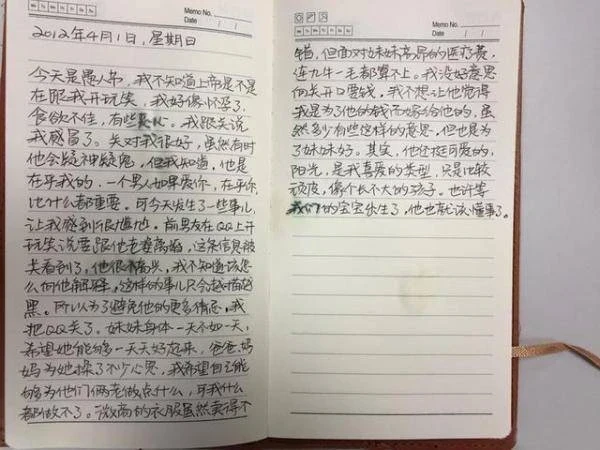 Memo No.
Mo Tu We Th Fr Sa Su
Date / /
2012年4月1日，星期日
今天是愚人节，我不知道上帝是不是
在跟我开玩笑，我好像怀孕了，
食欲不佳，有些恶心。我跟关说
我感冒了。关对我很好，虽然有时
他会疑神疑鬼，但我知道，他是
在乎我的，一个男人如果爱你，在乎你
比什么都重要。可今天发生了一些事儿，
让我感到很尴尬。前男友在QQ上开
玩笑说要跟他老婆离婚，这条信息被
关看到了，他很不高兴，我不知道该怎
么向他解释，这样的事儿只会越描越
黑。所以为了避免他的更多猜忌，我
把QQ关了。妹妹身体一天不如一天，
希望她能够一天天好起来，爸爸，妈
妈为她操了不少心思，我希望自己能
够为他们俩老做点什么，可我什么
都做不了。微商的衣服虽然卖得不
Memo No.
Mo Tu We Th Fr Sa Su
Date / /
错，但面对妹妹高昂的医疗费，
连九牛一毛都算不上。我没好意思
向关开口要钱，我不想让他觉得
我是为了他的钱而嫁给他的，虽
然多少有些这样的意思，但也是为
了妹妹好。其实，他还挺可爱的，
阳光，是我喜爱的类型，只是比较
顽皮，像个长不大的孩子。也许等
我们的宝宝出生了，他也就该懂事了。